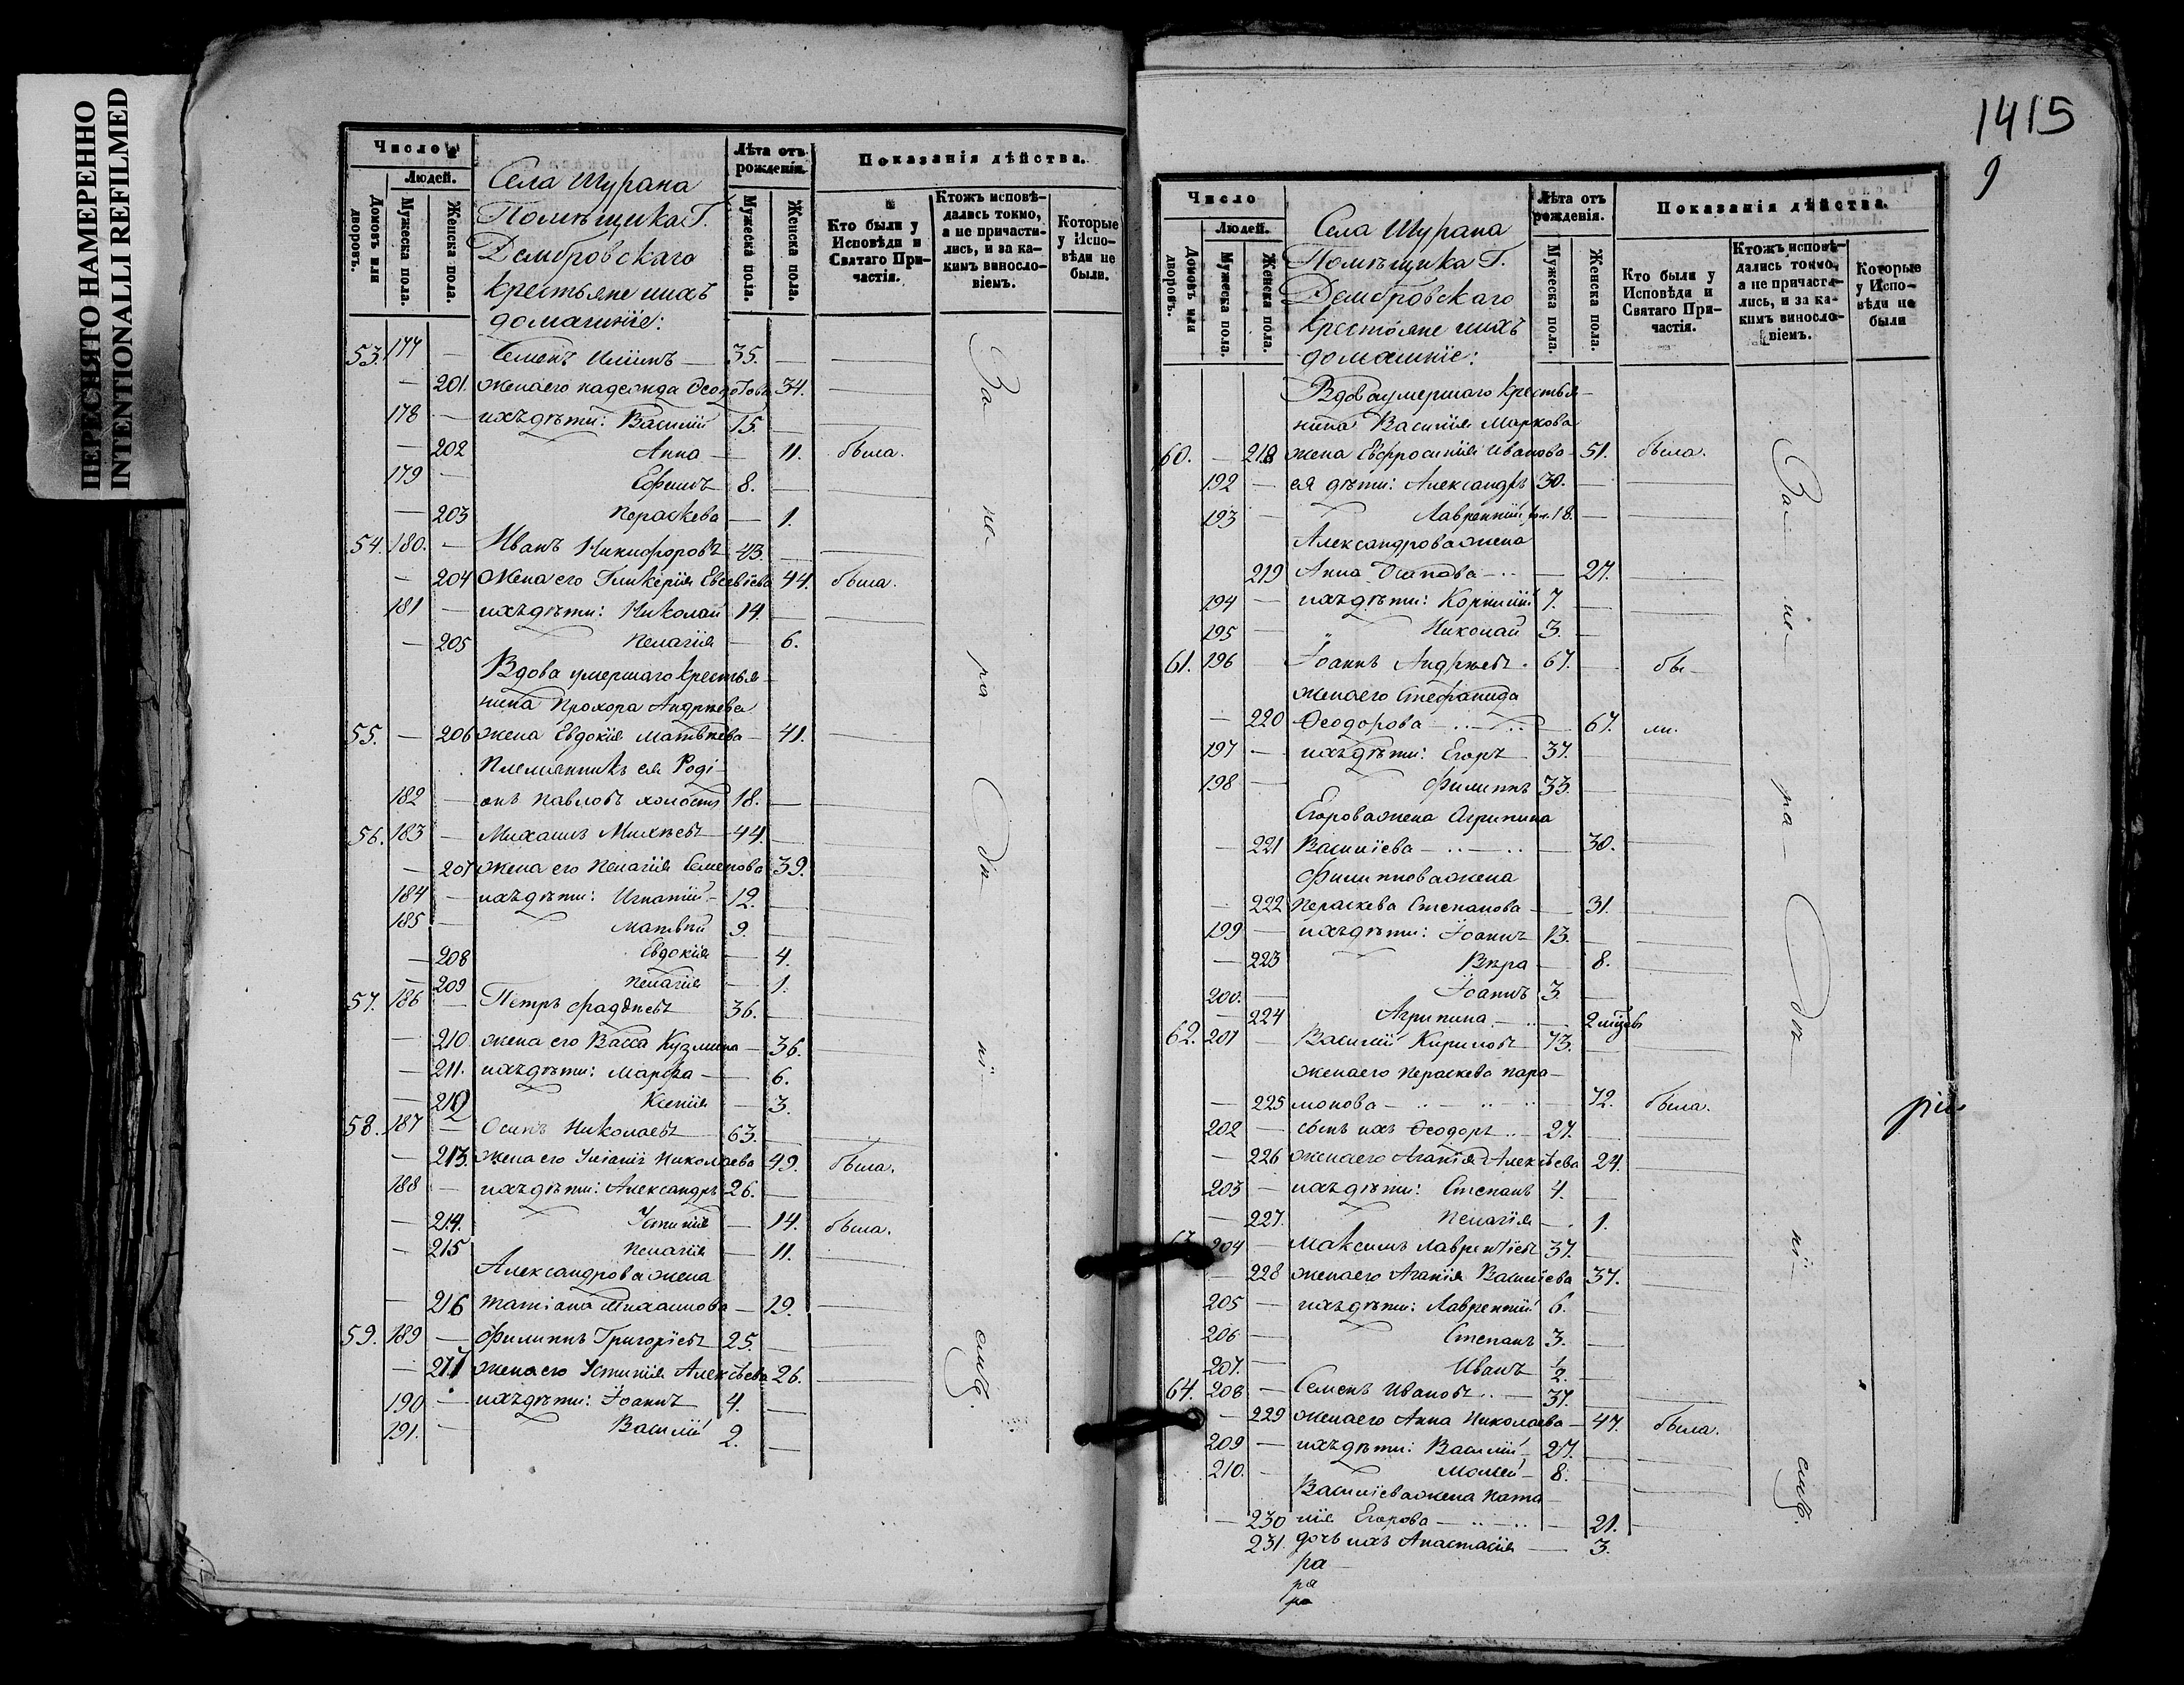 ПЕРЕСНЯТО НАМЕРЕННО
INTENTIONALLI REFILMED
Число
Людей.
Домовъ или дворовъ.
Мужеска пола.
Женска пола.
Села Шурана
Помѣщика Г.
Дембровскаго
крестьяне и ихъ
домашніе:
Лѣта отъ рожденія.
Мужеска пола.
Женска пола.
Показанія дѣйства.
Кто были у Исповѣди и Святаго Причастія.
Ктожъ исповѣдались токмо, а не причастились, и за какимъ винословіемъ.
Которые у Исповѣди не были.
53. 177 — Семенъ Ильинъ — 35. —
— 201. жена его Надежда Ѳедотова 34.
178 — ихъ дѣти: Василій 15. —
— 202 Анна — 11. была.
179 — Ефимъ 8. —
— 203 Пераскева — 1.
54. 180. — Иванъ Никифоровъ 43. —
— 204 жена его Гликерія Евсевіева 44. была.
181 — ихъ дѣти: Николай 14. —
— 205 Пелагія — 6.
Вдова умершаго крестья-
нина Прохора Андрѣева
55. — 206 жена Евдокія Матвѣева — 41.
Племянникъ ея Роді-
182 — онъ Павловъ холостъ 18. —
56. 183 — Михаилъ Михѣевъ 44. —
— 207 жена его Пелагія Семенова 39.
184 — ихъ дѣти: Игнатій 12. —
185 — Матвѣй 9. —
— 208 Евдокія — 4.
— 209 Пелагія — 1.
57. 186 — Петръ Фаддѣевъ 36. —
— 210 жена его Васса Кузмина — 36.
— 211. ихъ дѣти: Марѳа — 6.
— 212 Ксенія — 3.
58. 187 — Осипъ Николаевъ 63. —
— 213. жена его Уліанія Николаева 49. была.
188 — ихъ дѣти: Александръ 26. —
— 214. Устинія — 14. была.
— 215 Пелагія — 11.
Александрова жена
— 216 Татіана Михаилова — 19.
59. 189 — Филиппъ Григорьевъ 25. —
— 217 жена его Устинія Алексѣева 26.
190 — ихъ дѣти: Іоаннъ 4. —
191. — Василій 2. —
За
не
ра
дѣ
ні
емъ.
1415
9
Число
Людей.
Домовъ или дворовъ.
Мужеска пола.
Женска пола.
Села Шурана
Помѣщика Г.
Дембровскаго
крестьяне и ихъ
домашніе:
Лѣта отъ рожденія.
Мужеска пола.
Женска пола.
Показанія дѣйства.
Кто были у Исповѣди и Святаго Причастія.
Ктожъ исповѣдались токмо, а не причастились, и за какимъ винословіемъ.
Которые у Исповѣди не были
Вдова умершаго крестья-
нина Василія Маркова
60. — 218 жена Евфросинія Иванова — 51. была.
192 — ея дѣти: Александръ 30. —
193 — Лаврентій 18. —
Александрова жена
219 Анна Осипова — 27.
194 — ихъ дѣти: Корнилій 7. —
195 — Николай 3. —
61. 196 — Іоаннъ Андрѣевъ 67. — бы-
жена его Стефанида
— 220 Ѳеодорова — 67. ли.
197 — ихъ дѣти: Егоръ 37. —
198 — Филиппъ 33. —
Егорова жена Агрипина
— 221 Василіева — 30.
Филиппова жена
— 222 Пераскева Степанова — 31.
199 — ихъ дѣти: Іоаннъ 13. —
— 223 Вѣра — 8.
200. — Іоаннъ 3. —
— 224 Агрипина — 2 мѣцовъ
62. 201 — Василій Кириловъ 73. —
жена его Пераскева Пара-
— 225 монова — 72. была.
202 — сынъ ихъ Ѳеодоръ 27. —
— 226 жена его Агапія Алексѣева 24.
203 — ихъ дѣти: Степанъ 4. —
— 227. Пелагія — 1.
63 204 — Максимъ Лаврентіевъ 37. —
— 228 жена его Агапія Василіева 37.
205 — ихъ дѣти: Лаврентій 6. —
206 — Степанъ 3. —
207. — Иванъ 1/2. —
64. 208 — Семенъ Ивановъ 37. —
— 229 жена его Анна Николаева — 47. была.
209 — ихъ дѣти: Василій 27. —
210. — Моисей 8. —
Василіева жена Ната-
— 230 лія Егорова — 21.
231. дочь ихъ Анастасія — 3.
ра
ра
ра
За-
не-
ра-
дѣ-
ні-
емъ.